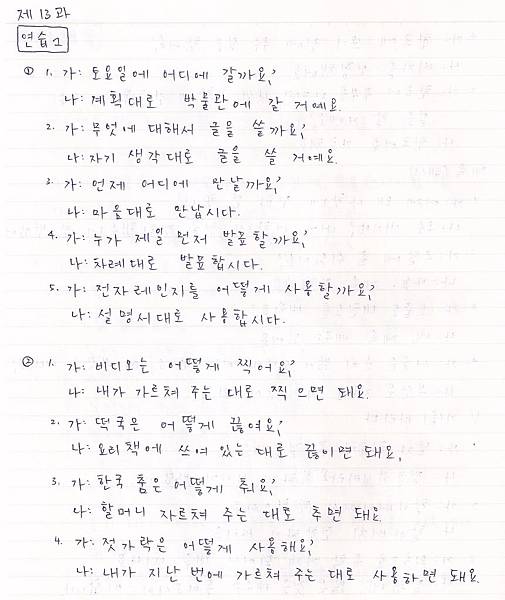 제 13 과
연습 1
① 1. 가: 토요일에 어디에 갈까요?
나: 계획대로 박물관에 갈 거예요.
2. 가: 무엇에 대해서 글을 쓸까요?
나: 자기 생각대로 글을 쓸 거예요.
3. 가: 언제 어디에 만날까요?
나: 마음대로 만납시다.
4. 가: 누가 제일 먼저 발표할까요?
나: 차례대로 발표합시다.
5. 가: 전자레인지를 어떻게 사용할까요?
나: 설명서대로 사용합시다.
② 1. 가: 비디오는 어떻게 찍어요?
나: 내가 가르쳐 주는 대로 찍으면 돼요.
2. 가: 떡국은 어떻게 끓여요?
나: 요리책에 쓰여 있는 대로 끓이면 돼요.
3. 가: 한국 춤은 어떻게 춰요?
나: 할머니 자르쳐 주는 대로 추면 돼요.
4. 가: 젓가락은 어떻게 사용해요?
나: 내가 지난 번에 가르쳐 주는 대로 사용하면 돼요.